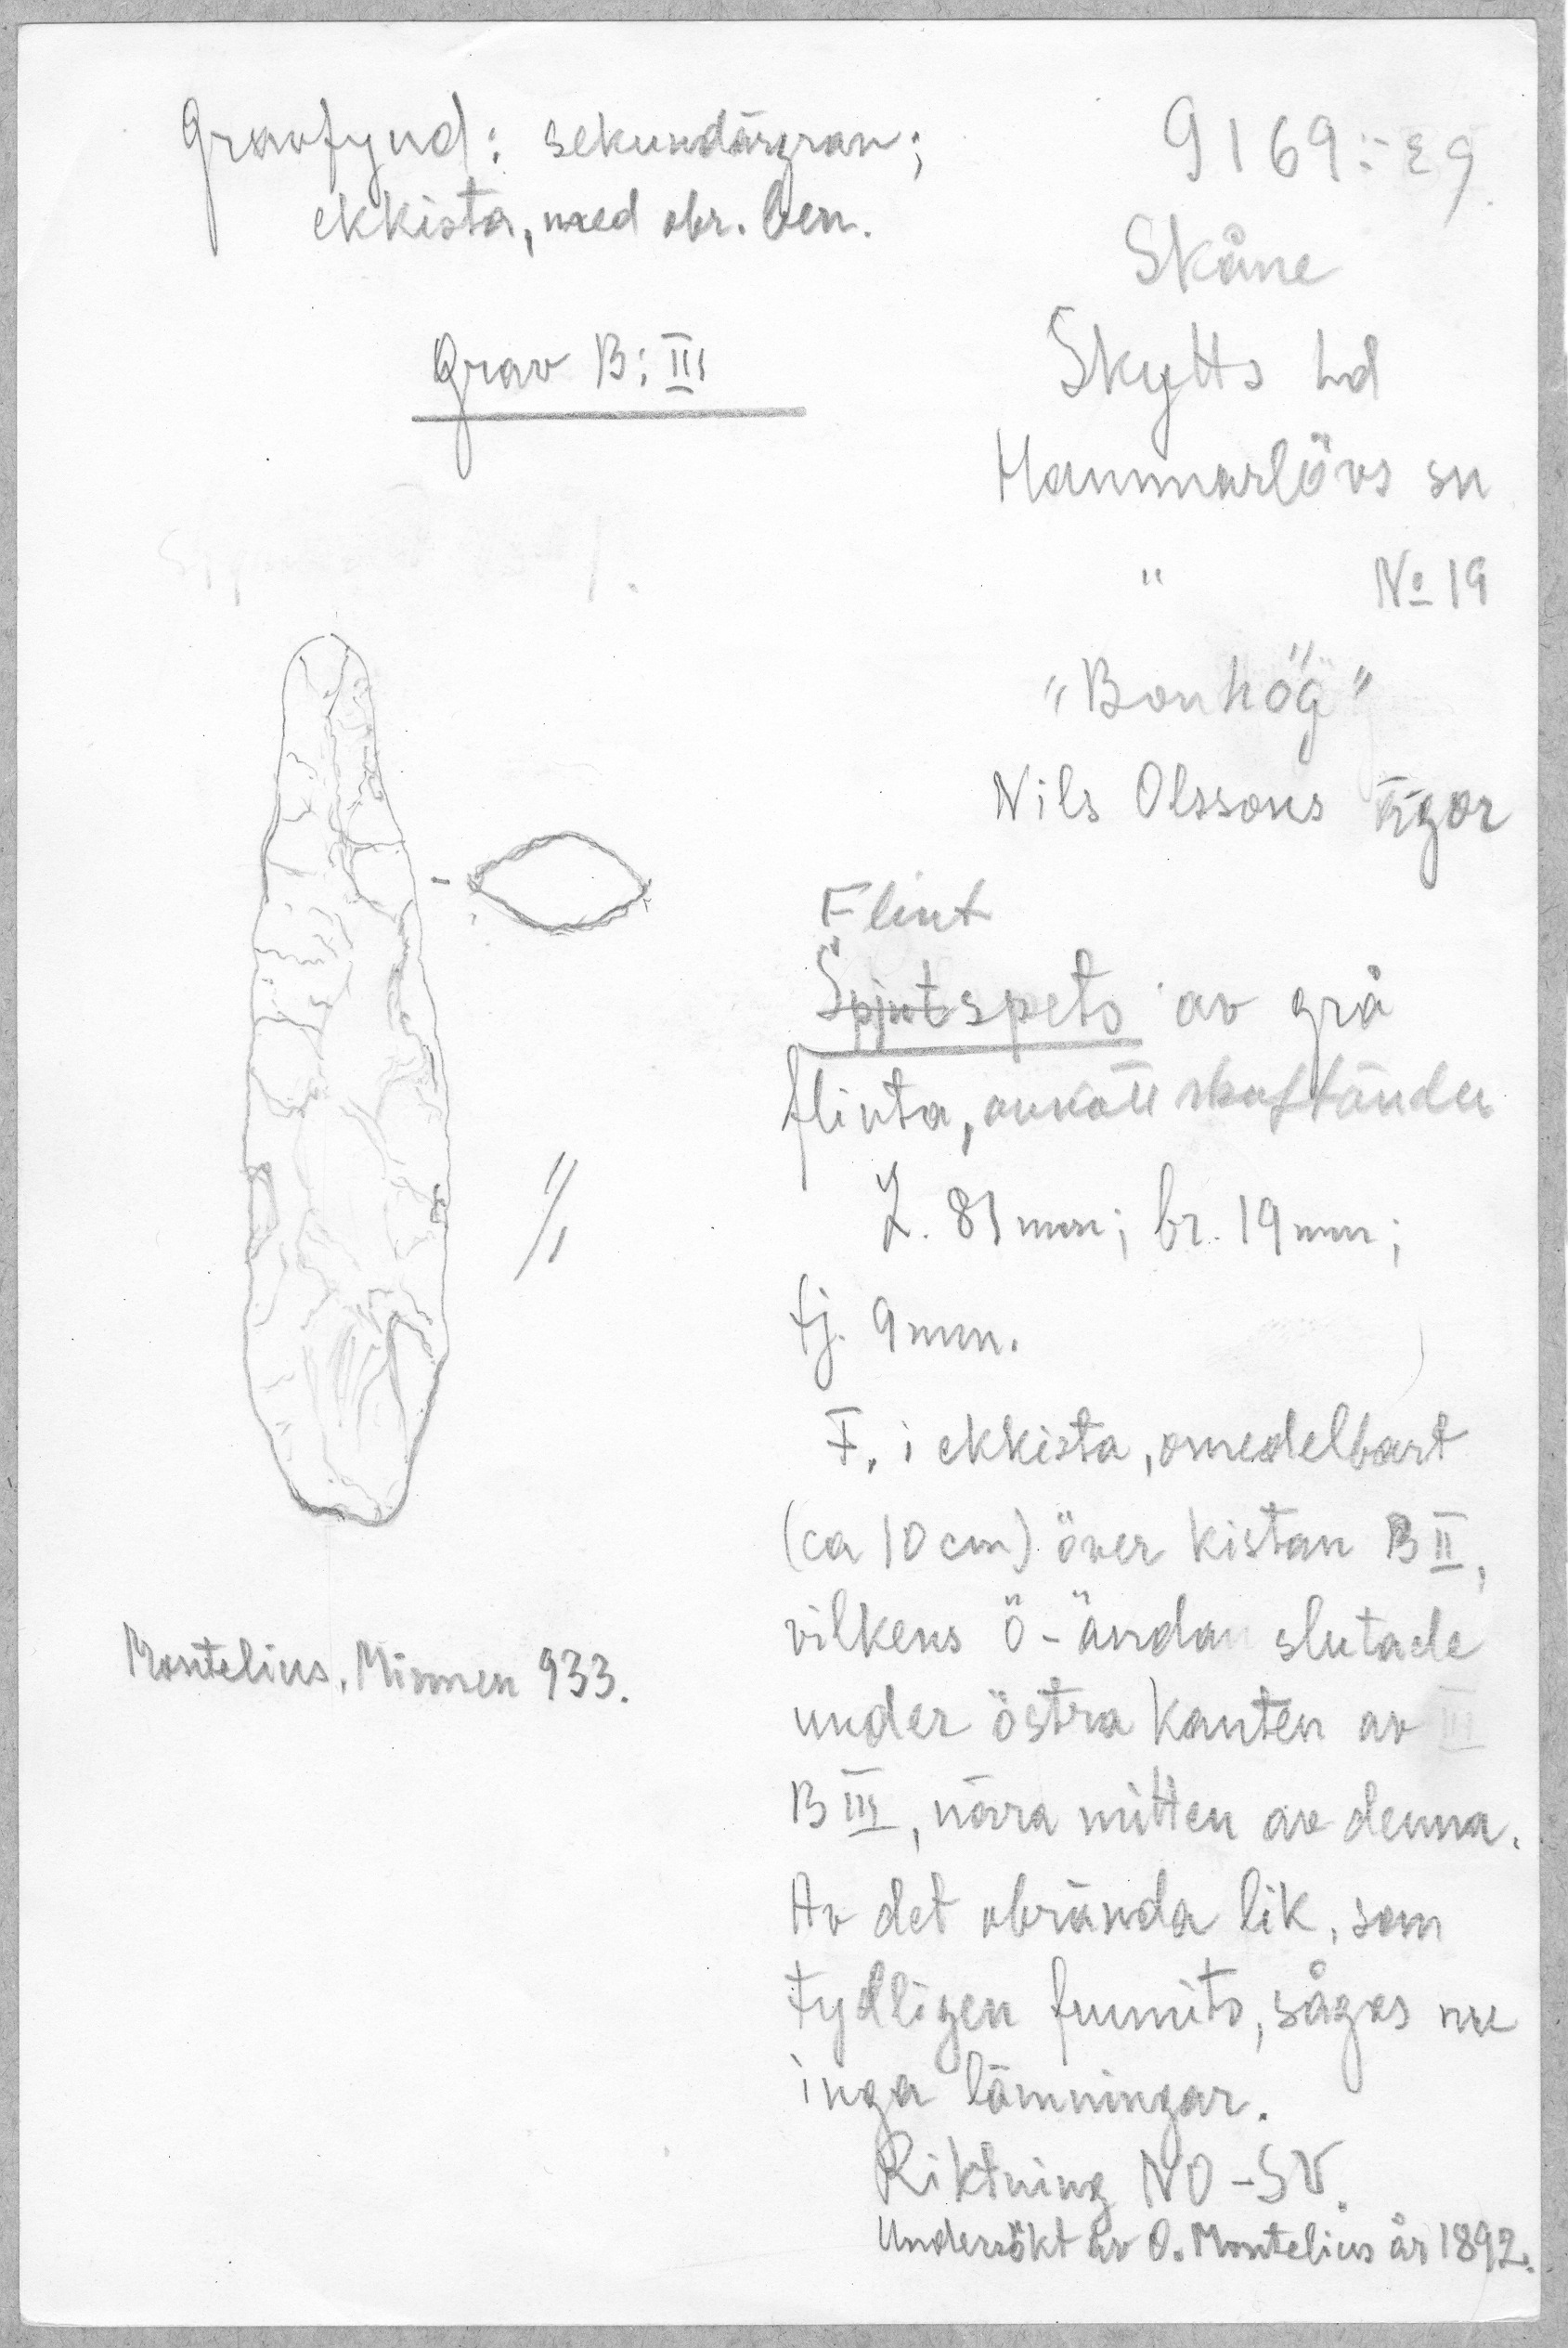 Gravfynd: sekundärgrav;
ekkista, med obr. ben.
Grav B: III
9169: E9
Skåne
Skytts hd
Hammarlövs sn
" No 19
"Bonhög"
Nils Olssons ägor
Flint
Spjutspets av grå
flinta, skaftänden
L. 81 mm; br. 19 mm;
tj. 9 mm.
F. i ekkista, omedelbart
(ca 10 cm) över kistan B II,
vilkens ö-ändan slutade
under östra kanten av III
B III, nära mitten av denna.
Av det obrända lik, som
tydligen funnits, sågos nu
inga lämningar.
Riktning NO-SV.
Undersökt av O. Montelius år 1892.
1/1
Montelius, Minnen 933.